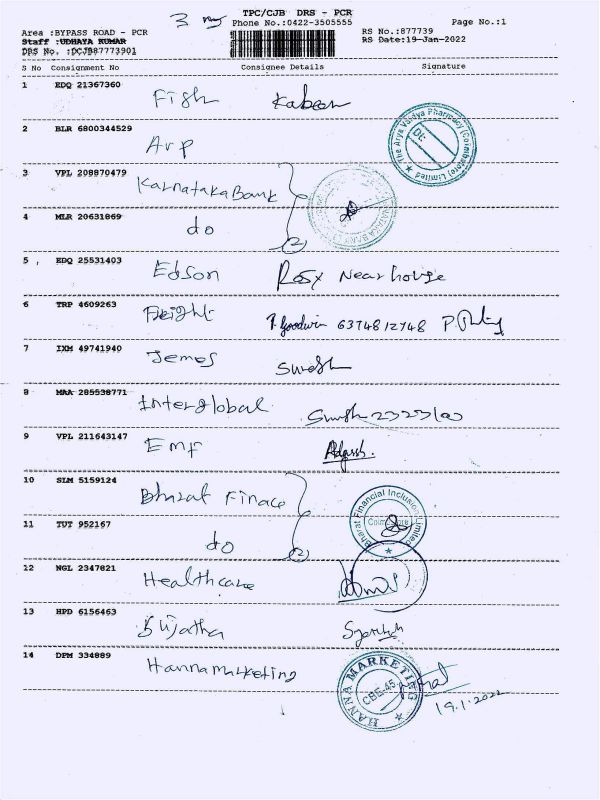 TPC/CJB DRS - PCR
Phone No.:0422-3505555
Page No.:1
Area :BYPASS ROAD - PCR
RS No.:877739
Staff :UDHAYA KUMAR
RS Date:19-Jan-2022
DRS No. :DCJB87773901
S No Consignment No Consignee Details Signature
1 EDQ 21367360
Fish Kabeer
2 BLR 6800344529
Avp
The Arya Vaidya Pharmacy (Coimbatore) Limited
3 VPL 208870479
Karnataka Bank
4 MLR 20631869
do (2)
5 EDQ 25531403
Edson Rosy Near house
6 TRP 4609263
Freight P. Goodwin 6374812748
7 IXM 49741940
Jemes Suresh
8 MAA 285538771
Interglobal
9 VPL 211643147
Emf
10 SLM 5159124
Bharat Finace
Bharat Financial Inclusion Limited
Coimbatore
11 TUT 952167
do (2)
12 NGL 2347821
Healthcare
13 HPD 6156463
Sujatha
14 DPM 334889
Hannamarketing
HANNA MARKETING
CBE-45
19.1.2022